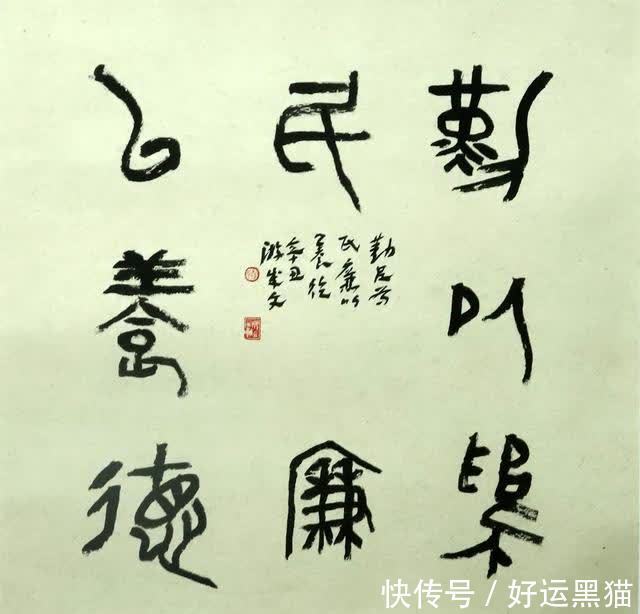 勤以為
民廉
以養德
民廉以
養德
辛丑
快传号/好运黑猫